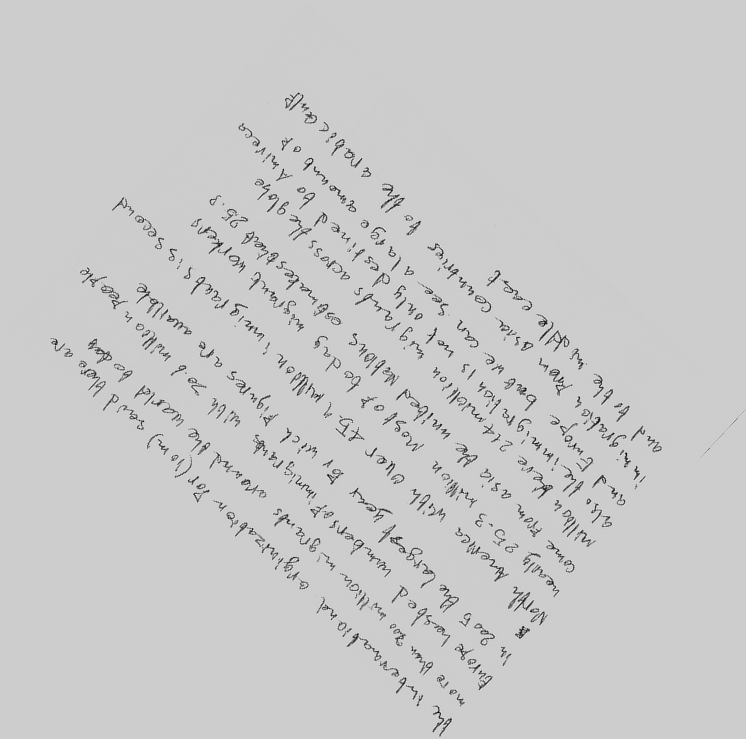 the international orginization For (10 m) said there are
more than 200 million migrants around the warld to day
Europe hosted the largest numbers of immigrants with 70.6 million people
in 2005 the largest year for wich figures are availble
North America with over 45.1 million immigrants is second
nearly 25.3 million Most of to day migrant workers
come from asia the united Nations estimatesthat 25.8
million there 214 million migrants across the globe
also the immigration is not only destined to America
and Europe but we can see a large amount of
immigration from asia countries to the arabic Gulf
and to the middle east